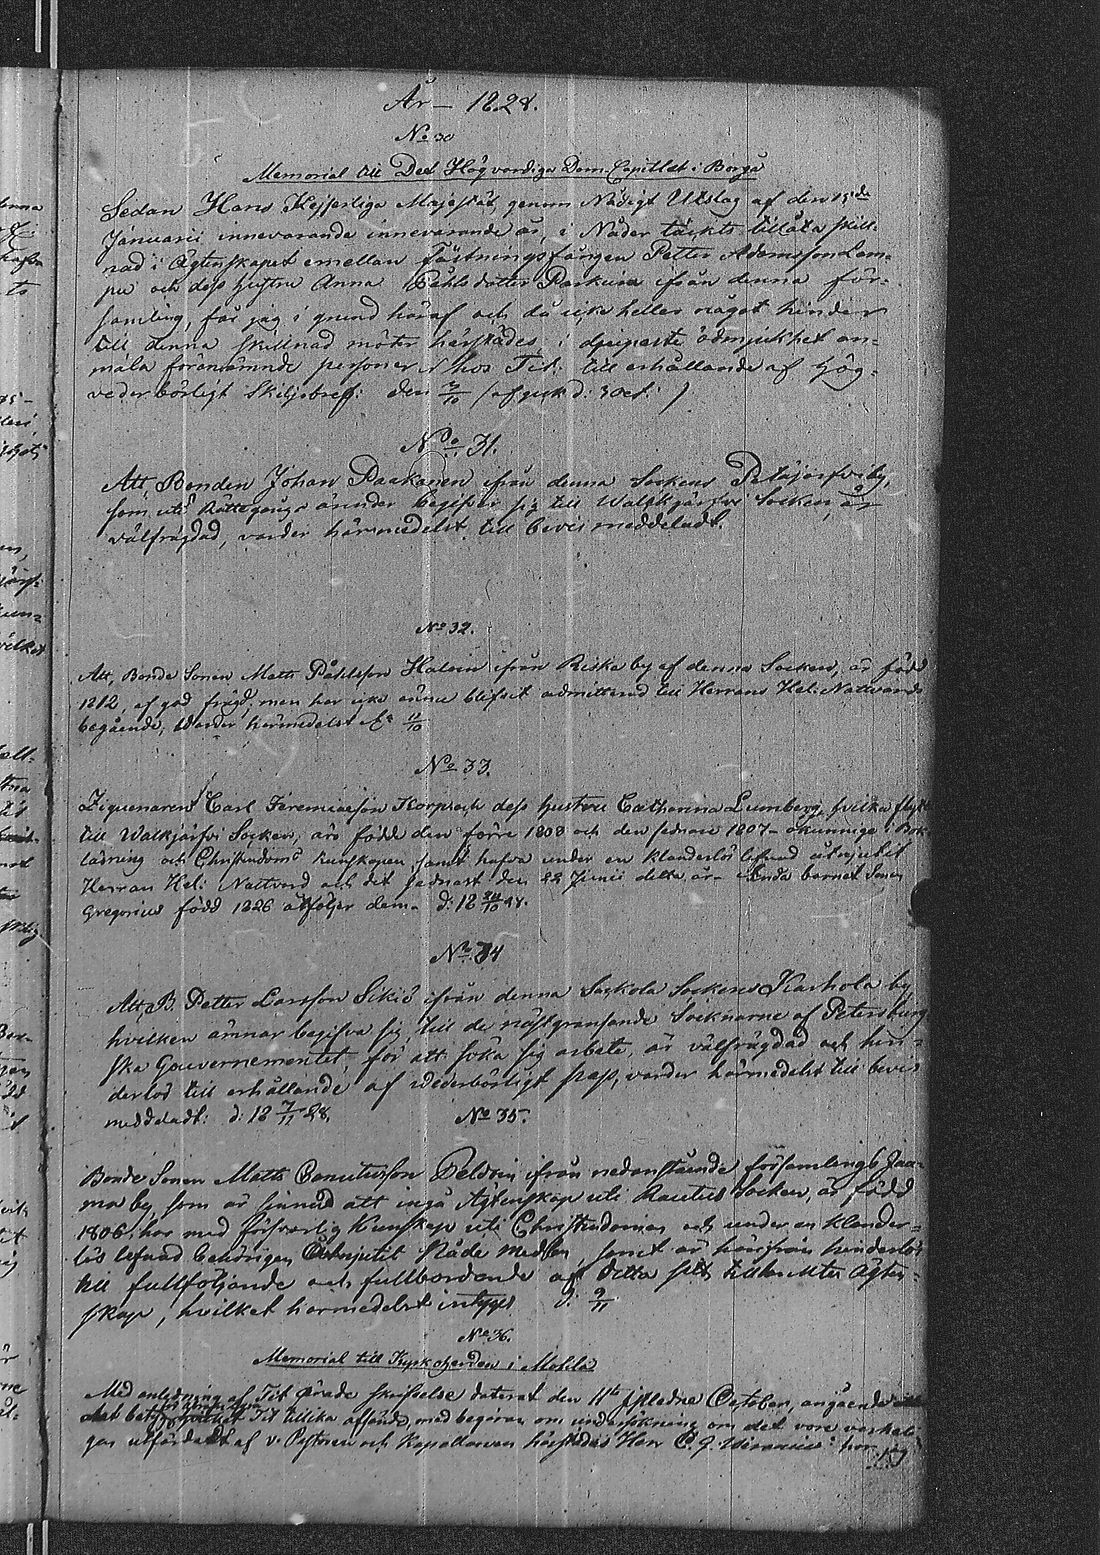 År — 1828.
No 30
Memorial till Det Högvördiga Dom-Capitlet i Borgå
Sedan Hans Kejserliga Majestät, genom Nådigt Utslag af den 15de
Januarii innevarande innevarande år, i Nåder täckts tillåta skill-
nad i Ägtenskapet emellan Fästningsfången Petter Adamsson Lam-
pu och dess hustru Anna Påhlsdotter Paskuin ifrån denna för-
samling, får jag i grund häraf och då icke heller något hinder
till denna skillnad möter härstädes i djupaste ödmjukhet an-
mäla förenämnde personer hos Tit: till erhållande af hög-
vederbörligt Skiljobref: den 3/10 (afgick d: 3 Oct: )
No 31.
Att Bonden Johan Paakonen ifrån denna Sockens Petäjärfvi by,
som uti Rättegångs ärender begifver sig till Walkjärfvi Socken, är
välfrägdad, varder härmedelst till bevis meddeladt.
No 32.
Att, Bonde Sonen Matts Påhlsson Haloin ifrån Riska by af denna Socken, är född
1812, af god frägd, men har icke ännu blifvit admitterad till Herrans Hel: Nattvards
begående, Warder härmedelst &c 11/10
No 33.
Ziguenaren Carl Jeremiaesson Korp och dess hustru Catharina Lumberg, hvilka flytt
till Walkjärfvi Socken, äro född den förre 1808 och den sednare 1807 – okunnige i Bok
ladning och Christendoms kunskapen samt hafva under en klanderlös lefnad åtnjutit
Herran Hel: Nattvard och det sednast den 22 Junii detta år – Enda barnet Sonen
Gregorius född 1826 åtföljer dem – d: 18 24/10 28.
No 34
Att, B. Petter Larsson Sikiö ifrån denna Sackola Sockens Karhola by
hvilken ärnar begifva sig till de näst gränsande Socknarne af Petersburg
ska Gouvernementet, för att söka sig arbete, är välfrägdad och hin-
derlös till erhållande af Wederbörligt pass, varder härmedelst till bevis
meddeladt: d: 18 7/11 28.
No 35.
Bonde Sonen Matts Canutusson Peldoin ifrån nedanstående församlings Jaa-
ma by, som är sinnad att ingå Ägtenskap uti Rautus Socken, är född
1806, har med försvarlig Kunskap uti Christendomen och under en klander-
lös lefnad behörigen Åtnjutit Nåde Medlen samt är härifrån hinderlös
till fullföljande och fullbordande af detta sitt tilltänkta Ägten-
skap, hvilket härmedelst intygas d: 9/11
No 36.
Memorial till Kyrkoherden i Mohla
Med anledning af Tit ärade skrifvelse daterad den 11te sistledne October, angående
det hvilket Tit tillika afsände med begäran om undersökning om det vore verkeli-
gen utfärdadt af v. Pastoren och Kapellanen härstädes Herr C. G. har